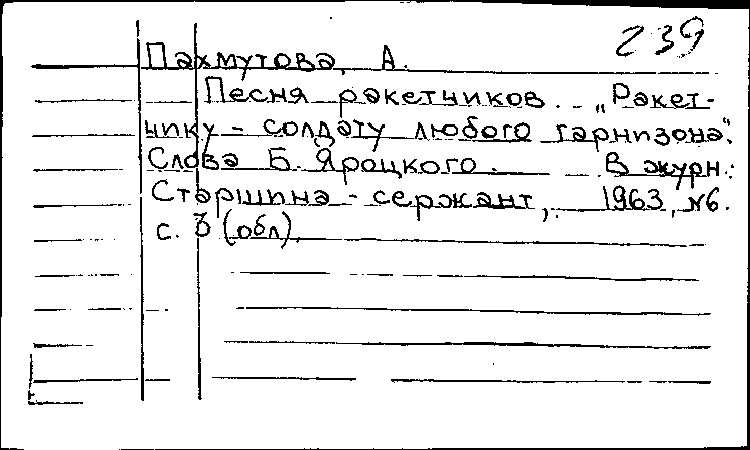 239
Пахмутова, А.
Песня ракетчиков. - „Ракет-
чику - солдату любого гарнизона".
Слова Б. Яроцкого. В журн.:
Старшина - сержант, 1963, №6.
с. 3 (обл).